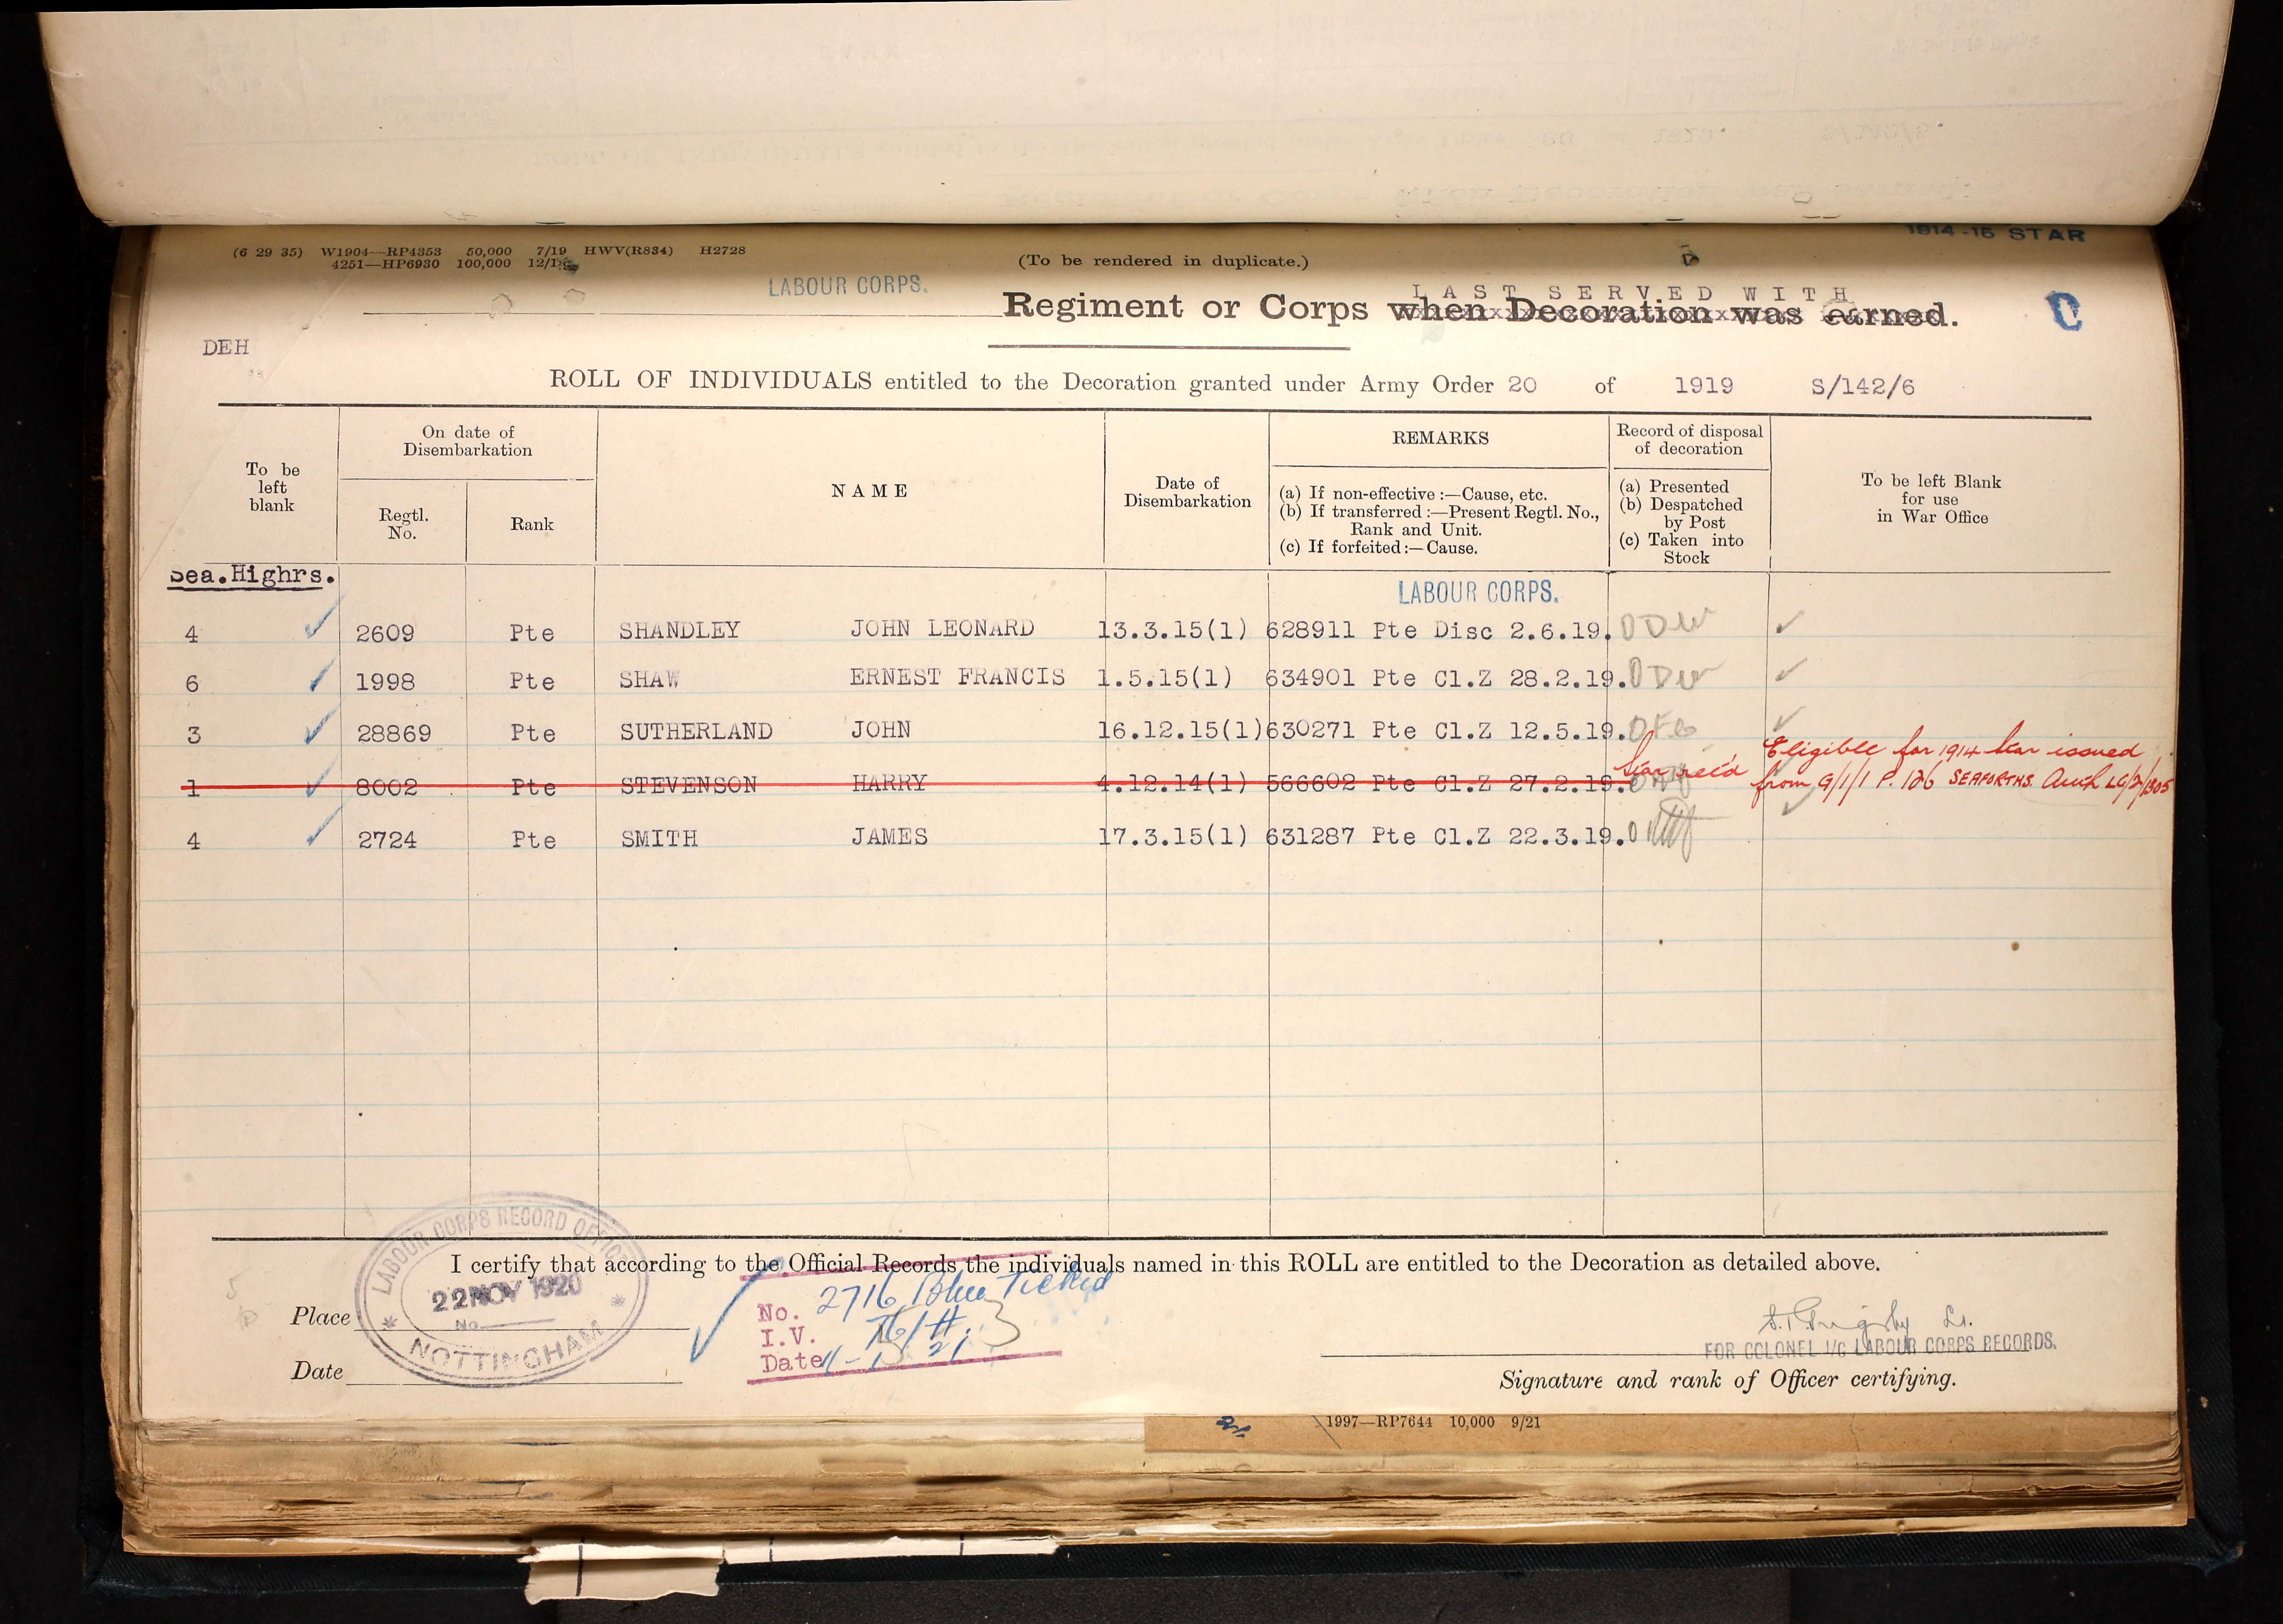 1914-15 STAR
(6 29 35) W1904—RP4353 50,000 7/19 HWV(R834) H2728
4251—HP6930 100,000
(To be rendered in duplicate.)
LABOUR CORPS.
LAST SERVED WITH
Regiment or Corps when Decoration was earned.
C
DEH
ROLL OF INDIVIDUALS entitled to the Decoration granted under Army Order 20 of 1919 S/142/6
To be left blank
On date of Disembarkation
Regtl. No.
Rank
NAME
Date of Disembarkation
REMARKS
(a) If non-effective :—Cause, etc.
(b) If transferred :—Present Regtl. No., Rank and Unit.
(c) If forfeited :—Cause.
Record of disposal of decoration
(a) Presented
(b) Despatched by Post
(c) Taken into Stock
To be left Blank for use in War Office
Sea.Highrs.
LABOUR CORPS.
4 2609 Pte SHANDLEY JOHN LEONARD 13.3.15(1) 628911 Pte Disc 2.6.19.
6 1998 Pte SHAW ERNEST FRANCIS 1.5.15(1) 634901 Pte Cl.Z 28.2.19.
3 28869 Pte SUTHERLAND JOHN 16.12.15(1) 630271 Pte Cl.Z 12.5.19.
1 8002 Pte STEVENSON HARRY 4.12.14(1) 566602 Pte Cl.Z 27.2.19.
Star rec'd
Eligible for 1914 Star issued
from G/1/1 P. 126 SEAFORTHS. Auth LG/2/1305
4 2724 Pte SMITH JAMES 17.3.15(1) 631287 Pte Cl.Z 22.3.19.
I certify that according to the Official Records the individuals named in this ROLL are entitled to the Decoration as detailed above.
LABOUR CORPS RECORD OFFICE
22 NOV 1920
No.
NOTTINGHAM
Place
Date
No. 2716 Blue Ticked
I.V.
Date 11-1-21
Lt.
FOR COLONEL I/C LABOUR CORPS RECORDS.
Signature and rank of Officer certifying.
1997—RP7644 10,000 9/21